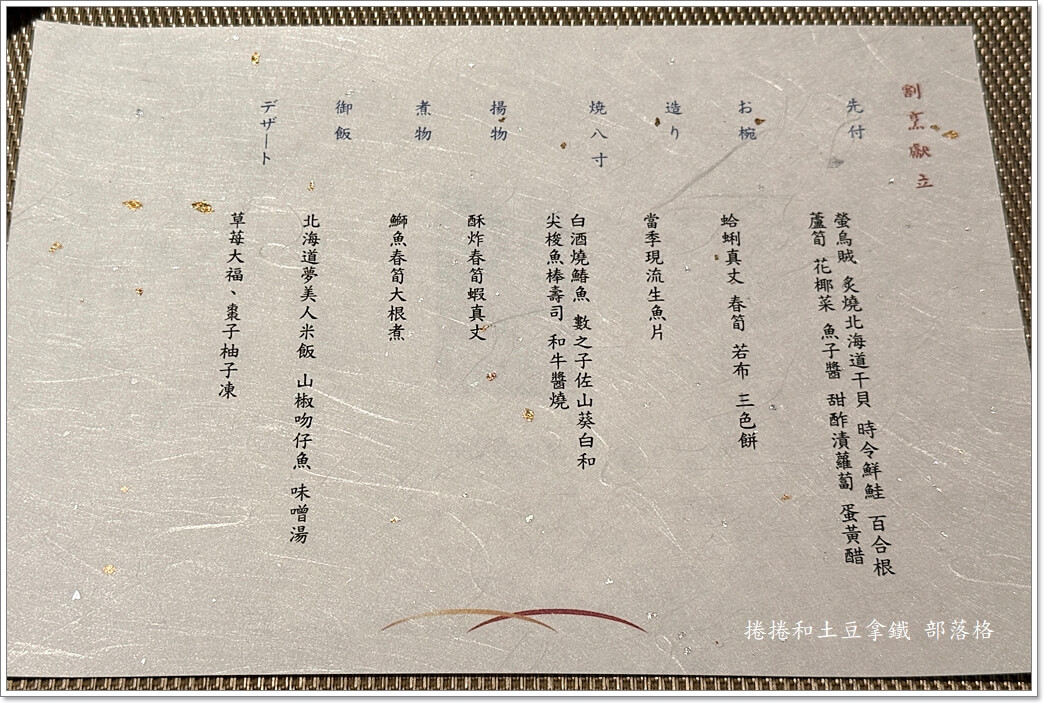 割烹獻立
先付
螢烏賊 炙燒北海道干貝 時令鮮鮭 百合根
蘆筍 花椰菜 魚子醬 甜酢漬蘿蔔 蛋黃醋
お椀
蛤蜊真丈 春筍 若布 三色餅
造り
當季現流生魚片
燒八寸
白酒燒鰆魚 數之子佐山葵白和
尖梭魚棒壽司 和牛醬燒
揚物
酥炸春筍蝦真丈
煮物
鰤魚春筍大根煮
御飯
北海道夢美人米飯 山椒吻仔魚 味噌湯
デザート
草莓大福、棗子柚子凍
捲捲和土豆拿鐵 部落格